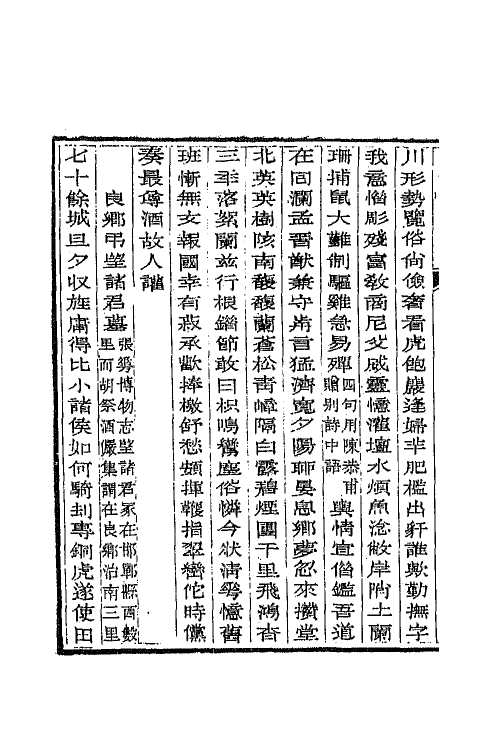 川形勢覽俗尚儉奢看虎飽嚴逢婦羊肥檻出豻誰歟勤撫字
我意惱彫殘富敎商尼父威靈憶灌壇水煩魚淰故岸階土蘭
珊捕鼠大難制驅雞急易殫四句用陳恭甫贈别詩中語輿情宜借鑑吾道
在回瀾孟晋猷兼守肯言猛濟寬夕陽聊晏息鄉夢忽來攢堂
北英英樹陔南馥馥蘭蒼松靑嶂隔白露碧煙團千里飛鴻杳
三年落絮闌茲行根錯節敢曰枳鳴鸞塵俗憐今狀淸夢憶舊
班慚無文報國幸有菽承歡捧檄舒愁頞揮鞭指翠巒佗時儻
奏最尊酒故人讙
良鄉弔望諸君墓張華博物志望諸君冢在邯鄲縣西數里而胡祭酒儼集謂在良鄉治南三里
七十餘城旦夕收旌庸得比小諸侯如何騎刦專銅虎遂使田